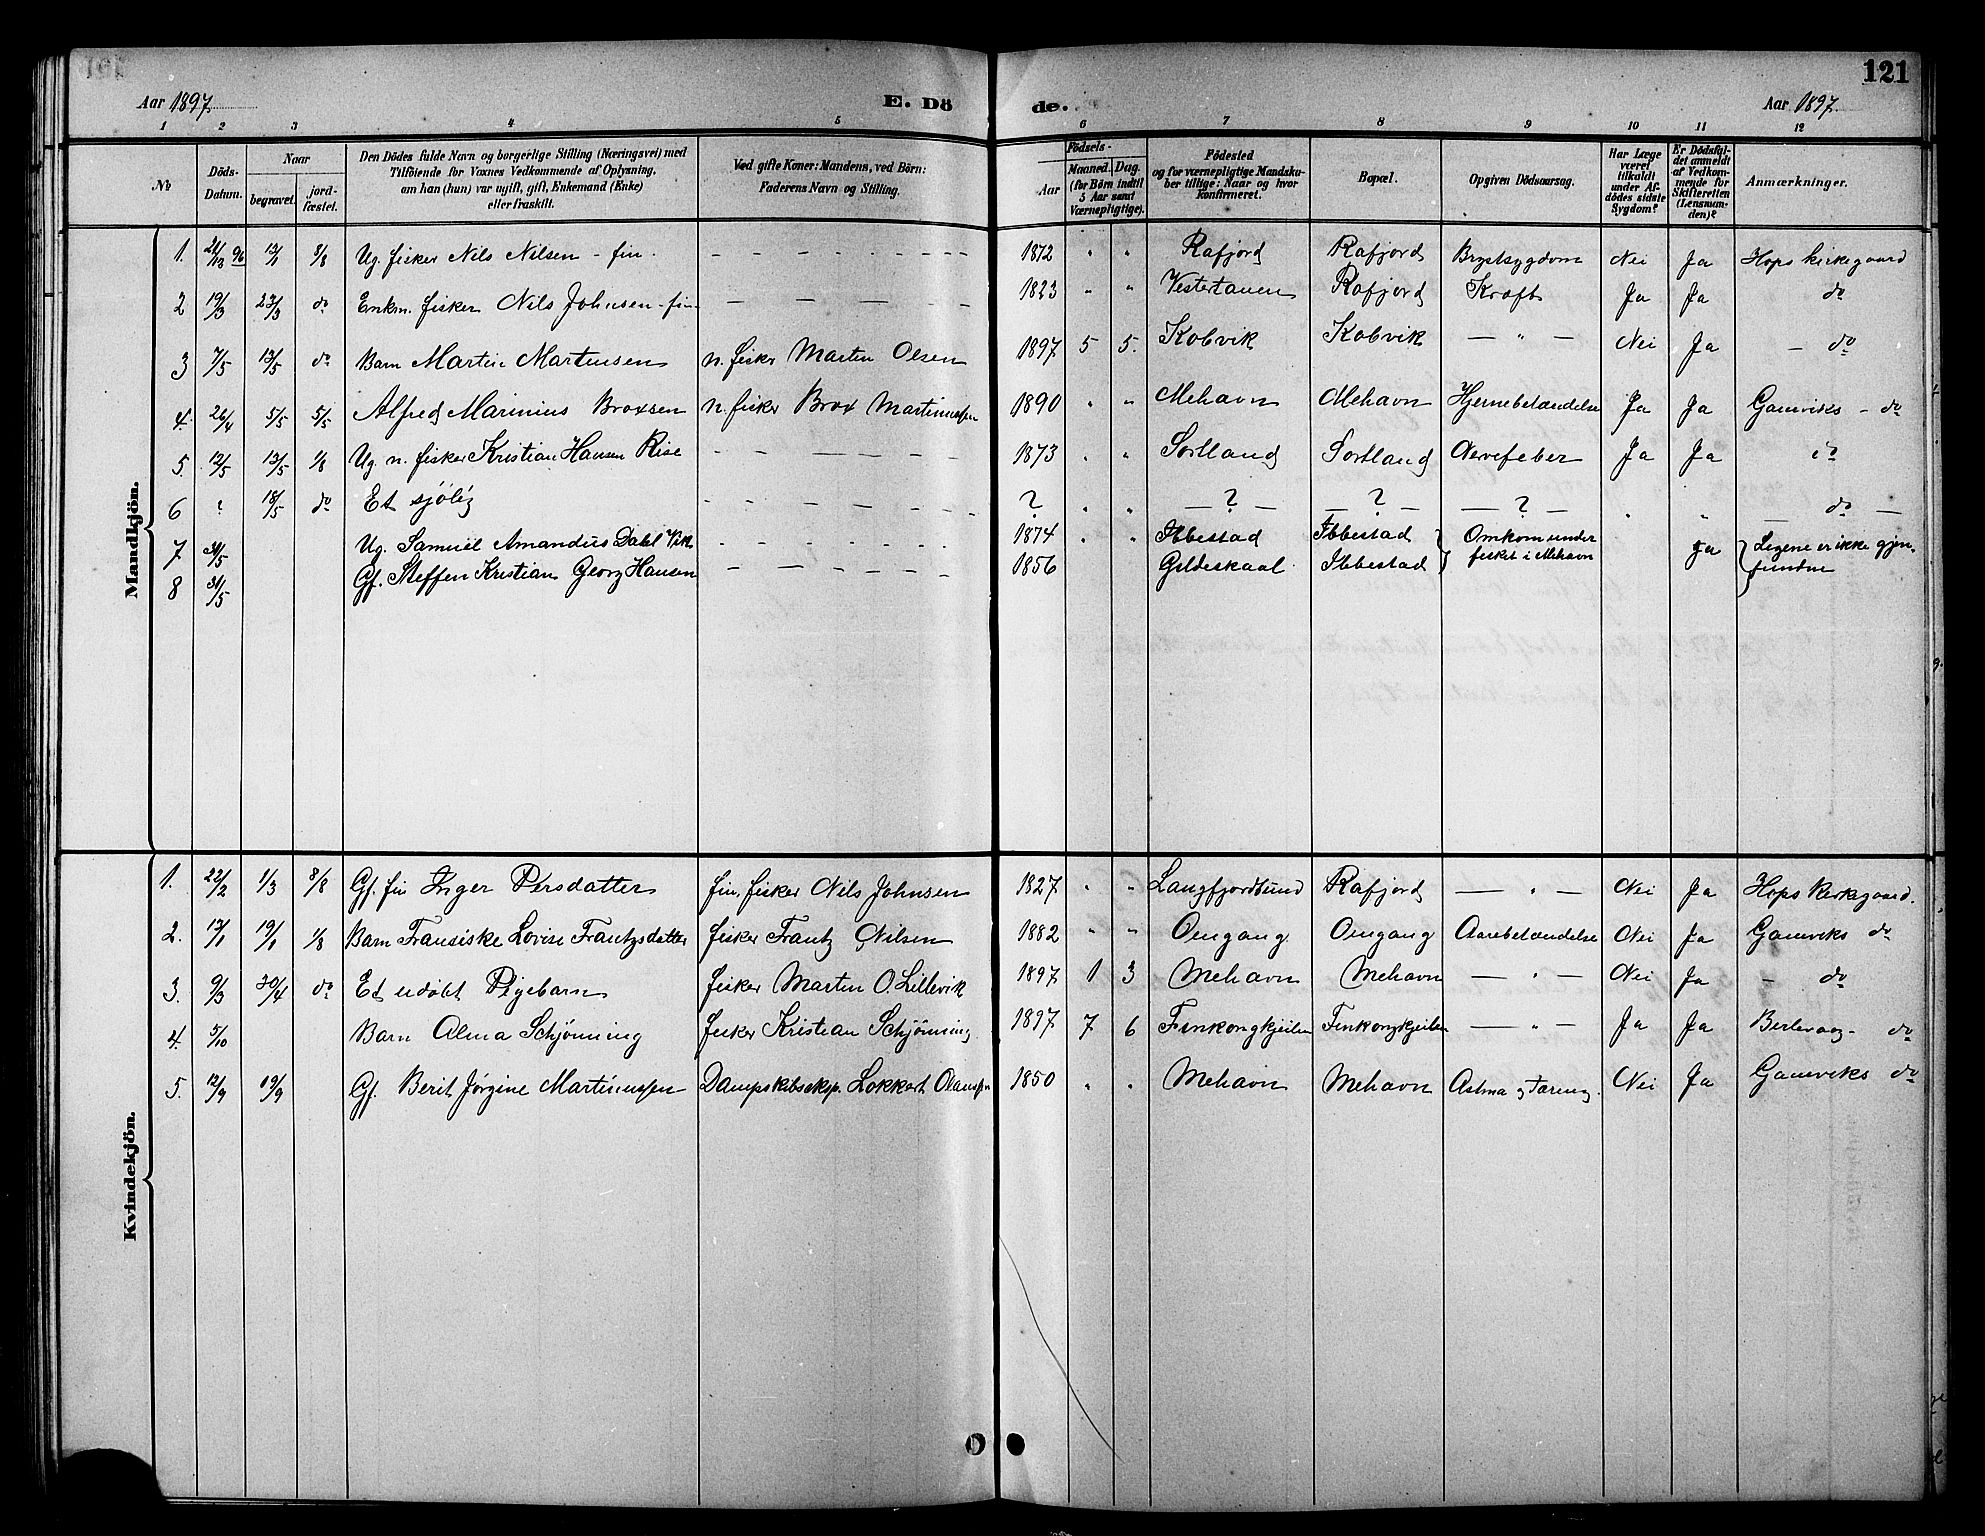 121
Aar 1897. E. Dö de. Aar 1897.
1 2 3 4 5 6 7 8 9 10 11 12
No
Döds-Datum.
Naar
begravet. jord-fæstet.
Den Dödes fulde Navn og borgerlige Stilling (Næringsvei) med
Tilföiende for Voxnes Vedkommende af Oplysning,
om han (hun) var ugift, gift, Enkemand (Enke)
eller fraskilt.
Ved gifte Koner: Mandens, ved Börn:
Faderens Navn og Stilling.
Födsels-
Aar
Maaned. Dag.
(for Börn indtil
5 Aar samt
Værnepligtige).
Födested
og for værnepligtige Mandska-
ber tillige: Naar og hvor
konfirmeret.
Bopæl.
Opgiven Dödsaarsag.
Har Læge
været
tilkaldt
under Af-
dödes sidste
Sygdom?
Er Dödsfal-
det anmeldt
af Vedkom-
mende for
Skifteretten
(Lensman-
den)?
Anmærkninger.
Mandkjön.
1. 21/12 96 13/1 8/8 Ug. fisker Nils Nilsen - fin. - - - - 1872 " " Rafjord Rafjord Brystsygdom Nei Ja Hops kirkegaard
2 19/3 23/3 do Enkm. fisker Nils Johnsen - fin - - - - 1823 " " Vestertanen Rafjord Kræft Ja Ja do
3 7/5 13/5 do Barn Martin Martinsen n. fisker Martin Olsen 1897 5 5. Kobvik Kobvik — " — Nei Ja - do
4. 26/4 5/5 5/5 Alfred Marinius Broxsen n. fisker Brox Martinussen 1890 " " Mehavn Mehavn Hjernebetændelse Ja Ja Gamviks - do
5. 12/5 13/5 1/8 Ug. n. fisker Kristian Hansen Rise - - - - 1873 " " Sortland Sortland Nervefeber Ja Ja do
6 ? 18/5 do Et sjölig - - - - ? " " — ? — — ? — — ? — " " — do —
7 31/5 Ug. Samuel Amandus Dahl Vik 1874 " " Ibbestad Ibbestad } Omkom under
fisket i Mehavn Ja } Ligene er ikke gjen-
fundne
8 31/5 Gf. Steffen Kristian Georg Hansen - - - - 1856 Gildeskaal. Ibbestad
Kvindekjön.
1. 22/2 1/3 8/8 Gf. fin Inger Persdatter fin. fisker Nils Johnsen 1827 " " Langfjordsund Rafjord — " — Nei Ja Hops Kirkegaard.
2. 13/1 19/1 1/8 Barn Fransiske Lovise Frantzsdatter fisker Frantz Nilsen 1882 " " Omgang Omgang Aarebetændelse Nei Ja Gamviks do
3. 9/3 30/4 do Et udöbt Pigebarn fisker Martin O. Lillevik 1897 1 3 Mehavn Mehavn — " — Nei Ja - do
4. 5/10 Barn Alma Schjönning fisker Kristian Schjönning 1897 7 6 Finkongkjeilen Finkongkjeilen — " — Ja Ja Berlevaag - do
5. 12/9 19/9 Gf. Berit Jörgine Martinussen Dampskibseksp. Lokkert 1850 " " Mehavn Mehavn Astma og Tæring. Nei Ja Gamviks do